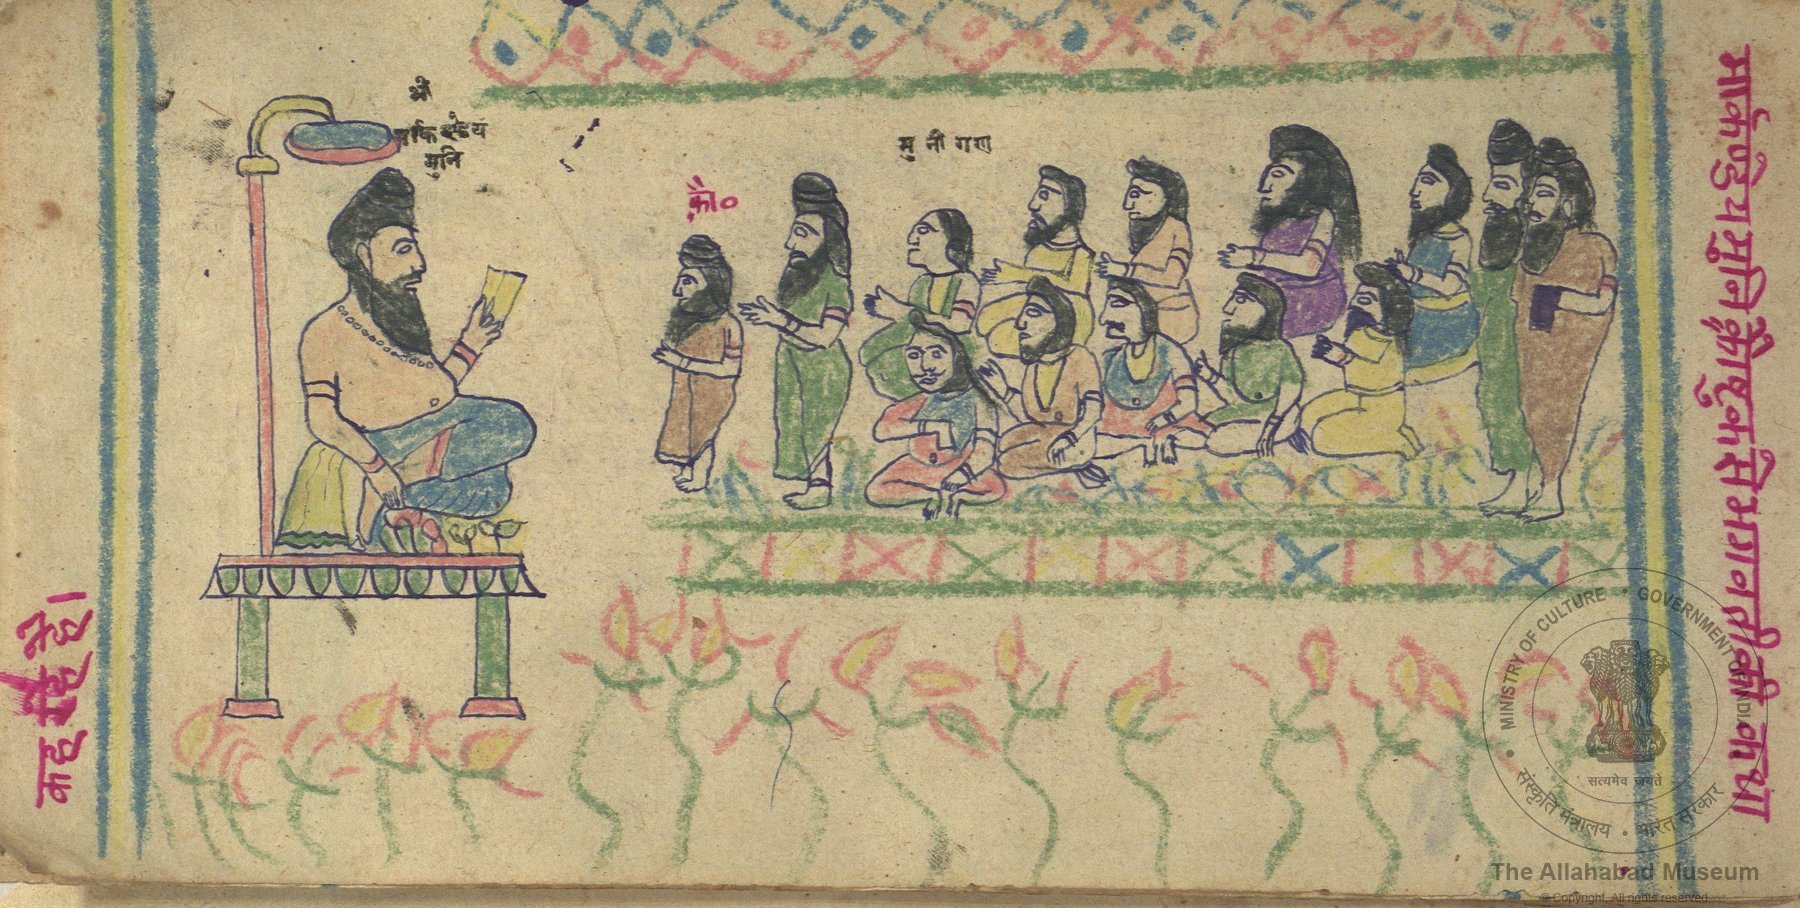 श्री
मार्कण्डेय
मुनि
मुनीगण
क्रौ०
मार्कण्डेय मुनि क्रौष्टुक से भगवती की कथा
कह रहे है।
MINISTRY OF CULTURE • GOVERNMENT OF INDIA
सत्यमेव जयते
संस्कृति मंत्रालय • भारत सरकार
The Allahabad Museum
© Copyright, All rights reserved